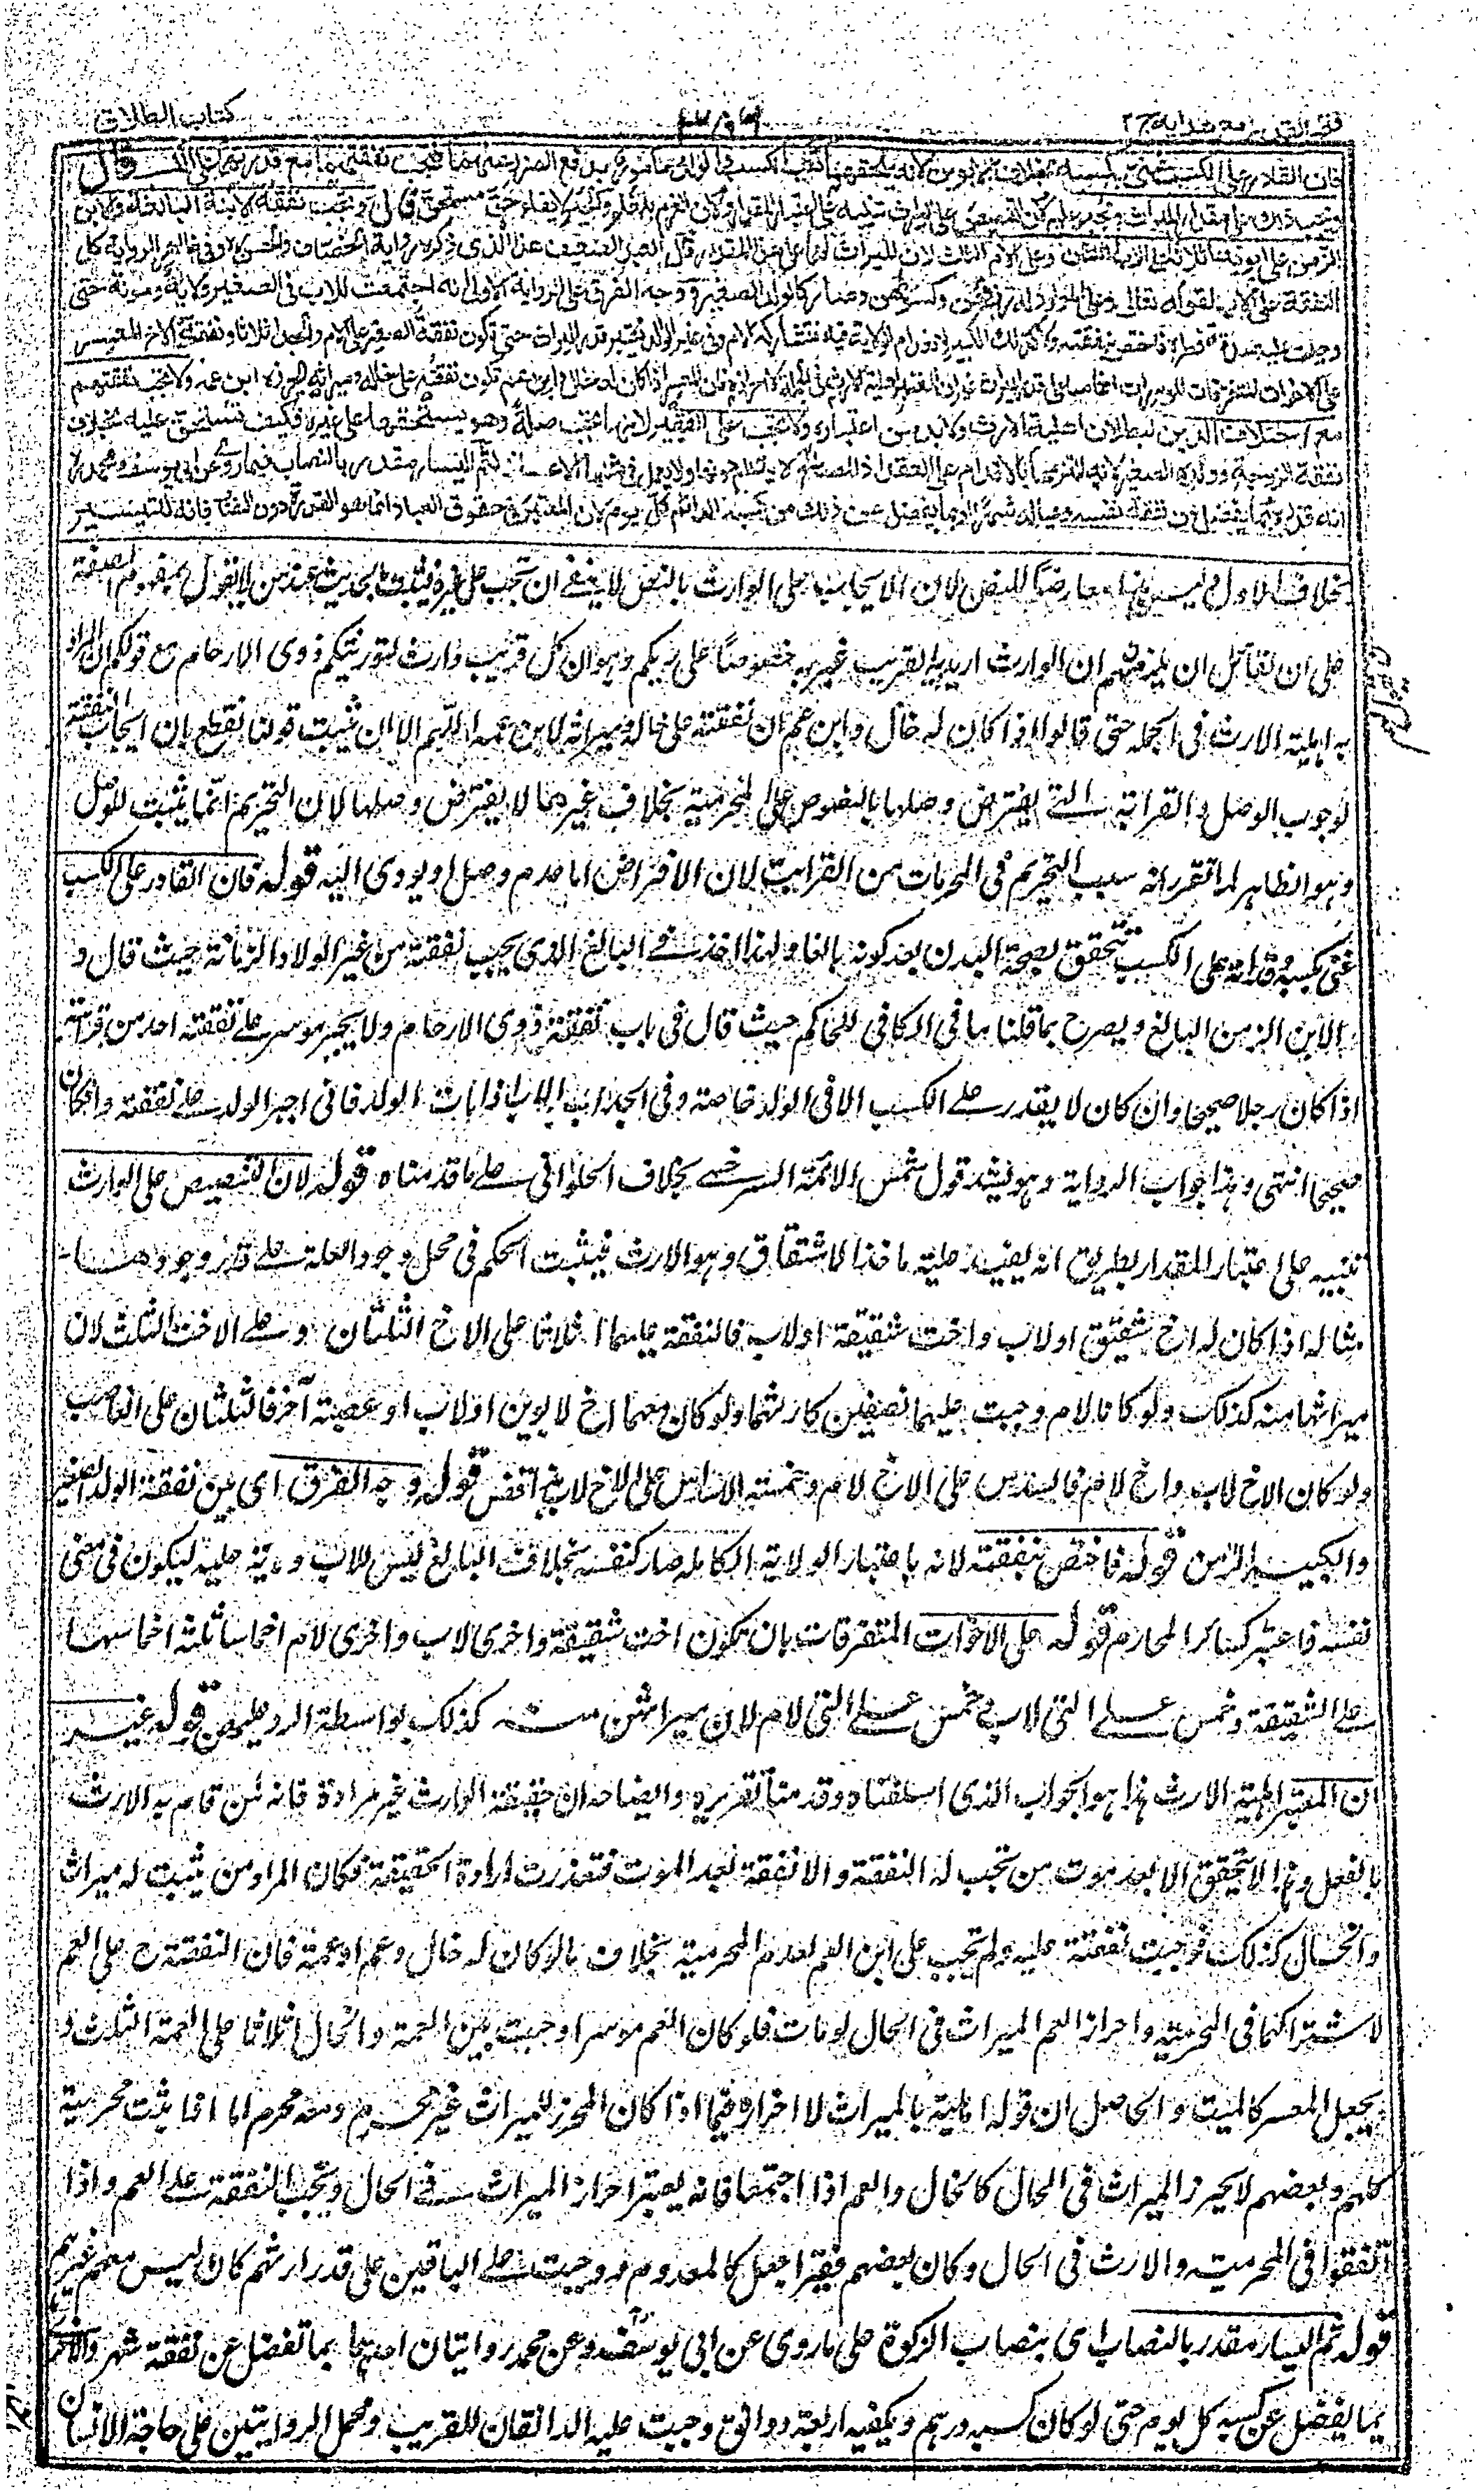 فتح القدير مع هداية ٢ ج
كتاب الطلاق
فان القادر على الكسب غنى بكسبه بخلاف الابوين لانه يلحقهما تعب الكسب والولد مامور بدفع الضرر عنهما فتجب نفقتهما مع قدرتهما على الكسب قال
ويجب ذلك على مقدار الميراث ويجبر عليه لان التنصيص على الوارث تنبيه على اعتبار المقدار ولان الغرم بالغنم والجبر لايفاء حق مستحق قال وتجب نفقة الابنة البالغة والابن
الزمن على ابويه اثلاثا على الاب الثلثان وعلى الام الثلث لان الميراث لهما على هذا المقدار قال العبد الضعيف هذا الذى ذكره رواية الخصاف والحسن وفى ظاهر الرواية كل
النفقة على الاب لقوله تعالى وعلى المولود له رزقهن وكسوتهن وصار كالولد الصغير ووجه الفرق على الرواية الاولى انه اجتمعت للاب فى الصغير ولاية ومؤنة حتى
وجبت عليه صدقة فطره فاختص بنفقته ولا كذلك الكبير لانعدام الولاية فيه فتشاركه الام وفى غير الوالد يعتبر قدر الميراث حتى تكون نفقة الصغير على الام والجد اثلاثا ونفقة الاخ المعسر
على الاخوات المتفرقات الموسرات اخماسا على قدر الميراث غير ان المعتبر اهلية الارث فى الجملة لا احرازه فان المعسر اذا كان له خال وابن عم تكون نفقته على خاله وميراثه يحرزه ابن عمه ولا تجب نفقتهم
مع اختلاف الدين لبطلان اهلية الارث ولا بد من اعتباره ولا تجب على الفقير لانها تجب صلة وهو يستحقها على غيره فكيف تستحق عليه بخلاف
نفقة الزوجة وولده الصغير لانه التزمها بالاقدام على العقد اذ المصالح لا تنتظم دونها ولا يعمل فى مثلها الاعسار ثم اليسار مقدر بالنصاب فيما روى عن ابى يوسف وعن محمد
انه قدره بما يفضل عن نفقة نفسه وعياله شهرا او بما يفضل عن ذلك من كسبه الدائم كل يوم لان المعتبر فى حقوق العباد انما هو القدرة دون النصاب فانه للتيسير
بخلاف الاول وليس هنا معارضا للنص لان الايجاب على الوارث بالنص لا ينفى ان تجب على غيره فيثبت بالحديث عند من لا يقول بمفهوم الصفة
على ان لقائل ان يلزمهم ان الوارث اريد به القريب غير به خصوصا على رايكم وهو ان كل قريب وارث لتوريثكم ذوى الارحام مع قولكم ان المراد
به اهلية الارث فى الجملة حتى قالوا اذا كان له خال وابن عم ان نفقته على خاله وميراثه لابن عمه اللهم الا ان يثبت قولنا نقطع بان ايجاب النفقة
لوجوب الوصل والقرابة التى يفترض وصلها بالنصوص هى المحرمية بخلاف غيرها لا يفترض وصلها لان التحريم انما يثبت للوصل
وهو الظاهر لما تقرر انه سبب التحريم فى المحرمات من القرابة لان الافتراض اما عدم وصل او يودى اليه قوله فان القادر على الكسب
غنى بكسبه وقدرته على الكسب تتحقق بصحة البدن بعد كونه بالغا ولهذا اخذ فى البالغ الذى يجب نفقته من غير الولاد الزمانة حيث قال و
الابن الزمن البالغ ويصرح بما قلنا ما فى الكافى للحاكم حيث قال فى باب نفقة ذوى الارحام ولا يجبر موسر على نفقة احد من قرابته
اذا كان رجلا صحيحا وان كان لا يقدر على الكسب الا فى الولد خاصة وفى الجد اب الاب اذا مات الولد فانى اجبر الولد على نفقته وان كان
صحيحا انتهى وهذا جواب الرواية وهو يشد قول شمس الائمة السرخسى بخلاف الحلوانى على ما قدمناه قوله لان التنصيص على الوارث
تنبيه على اعتبار المقدار بطريق انه يفيد علية ماخذ الاشتقاق وهو الارث فيثبت الحكم فى محل وجود العلة على قدر وجودها
مثاله اذا كان له اخ شقيق او لاب واخت شقيقة او لاب فالنفقة عليهما اثلاثا على الاخ الثلثان وعلى الاخت الثلث لان
ميراثهما منه كذلك ولو كانا لام وجبت عليهما نصفين كارثهما ولو كان معهما اخ لابوين او لاب او عصبة آخر فالثلثان على العاصب
ولو كان الاخ لاب واخ لام فالسدس على الاخ لام وخمسة الاسداس على الاخ لاب قوله وجه الفرق اى بين نفقة الولد الصغير
والكبير الزمن قوله فاختص بنفقته لانه باعتبار الولاية الكاملة صار كنفسه بخلاف البالغ ليس للاب ولاية عليه ليكون فى معنى
نفسه فاعتبر كسائر المحارم قوله على الاخوات المتفرقات بان يكون اخت شقيقة واخرى لاب واخرى لام اخماسا ثلثة اخماسها
على الشقيقة وخمس على التى لاب وخمس على التى لام لان ميراثهن منه كذلك بواسطة الرد عليهن قوله غير
ان المعتبر اهلية الارث هذا هو الجواب الذى اسلفناه وقدمنا تقريره وايضاحه ان حقيقة الوارث غير مرادة فانه من قام به الارث
بالفعل وهذا لا يتحقق الا بعد موت من تجب له النفقة ولا نفقة بعد الموت فتعذرت ارادة الحقيقة فكان المراد من يثبت له ميراث
والخال كذلك فوجبت نفقته عليه ولم تجب على ابن العم لعدم المحرمية بخلاف ما لو كان له خال وعم او عمة فان النفقة ح على العم
لاشتراكهما فى المحرمية واحراز العم الميراث فى الحال لو مات فلو كان العم موسرا وجبت بين العمة والخال اثلاثا على العمة الثلث و
يجعل المعسر كالميت والحاصل ان قوله اهلية الميراث لا احرازه فيما اذا كان المحرز للميراث غير محرم ومعه محرم اما اذا ثبت محرمية
كلهم وبعضهم لا يحرز الميراث فى الحال كالخال والعم اذا اجتمعا فانه يعتبر احراز الميراث فى الحال وتجب النفقة على العم واذا
اتفقوا فى المحرمية والارث فى الحال وكان بعضهم فقيرا جعل كالمعدوم ووجبت على الباقين على قدر ارثهم كان ليس معهم غيرهم
قوله ثم اليسار مقدر بالنصاب اى بنصاب الزكوة على ما روى عن ابى يوسف وعن محمد روايتان احدهما بما تفضل عن نفقة شهر والاخرى
بما يفضل عن كسبه كل يوم حتى لو كان كسبه درهم ويكفيه اربعة دوانق وجبت عليه الدانقان للقريب ومحمل الروايتين على حاجة الانسان